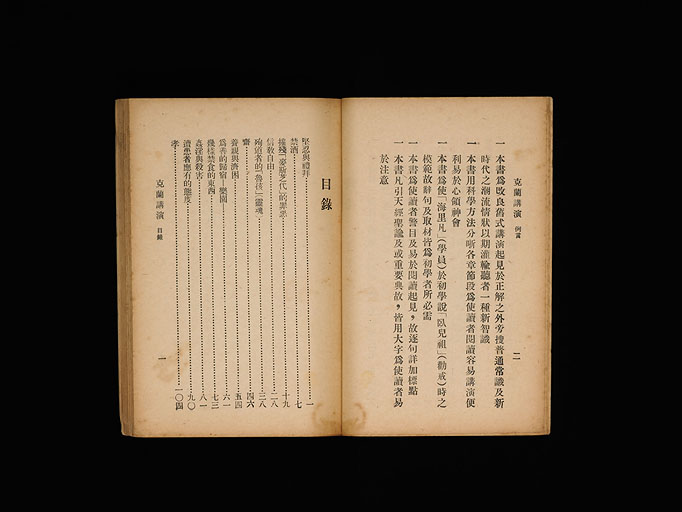 克蘭講演 例言
二
一 本書爲改良舊式講演起見於正解之外旁搜普通常識及新
時代之潮流情狀以期灌輸聽者一種新智識
一 本書用科學方法分晰各章節段爲使讀者閱讀容易講演便
利易於心領神會
一 本書爲使「海里凡」(學員)於初學說「臥兒祖」(勸戒)時之
模範故辭句及取材皆爲初學者所必需
一 本書爲使讀者警目及易於閱讀起見,故逐句詳加標點
一 本書凡引天經聖諭及或重要典故,皆用大字爲使讀者易
於注意
目錄
堅忍與禮拜 一
禁酒 七
摧殘「麥斯志代」的罪惡 十九
信教自由 二八
殉道者的「魯孩」(靈魂) 三八
齋 四六
養親與濟困 五四
爲善的歸宿—樂園— 六一
幾樣禁食的東西 七三
姦淫與殺害 八一
濟患者應有的態度 九〇
孝 一〇四
克蘭講演 目錄
一